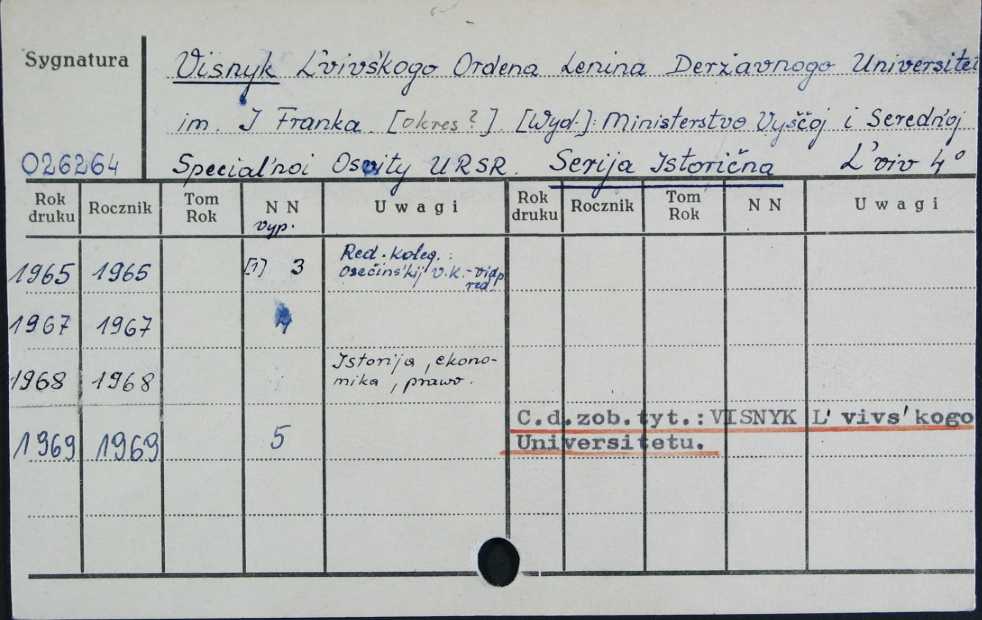 Sygnatura
Visnyk L'vivs'kogo Ordena Lenina Deržavnogo Universitet
im. I Franka. [okres?]. [Wyd.]: Ministerstvo Vyščoj i Seredn'oj
026264 Special'noi Osvity URSR. Serija Istorična L'viv 4°
Rok druku Rocznik Tom Rok N N Uwagi Rok druku Rocznik Tom Rok N N Uwagi
vyp.
1965 1965 [1] 3 Red. koleg.:
Osečins'kij V.K. - vidp
red
1967 1967
1968 1968 Istorija, ekono-
mika, prawo.
C.d.zob.tyt.: VISNYK L'vivs'kogo
1969 1969 5 Universitetu.